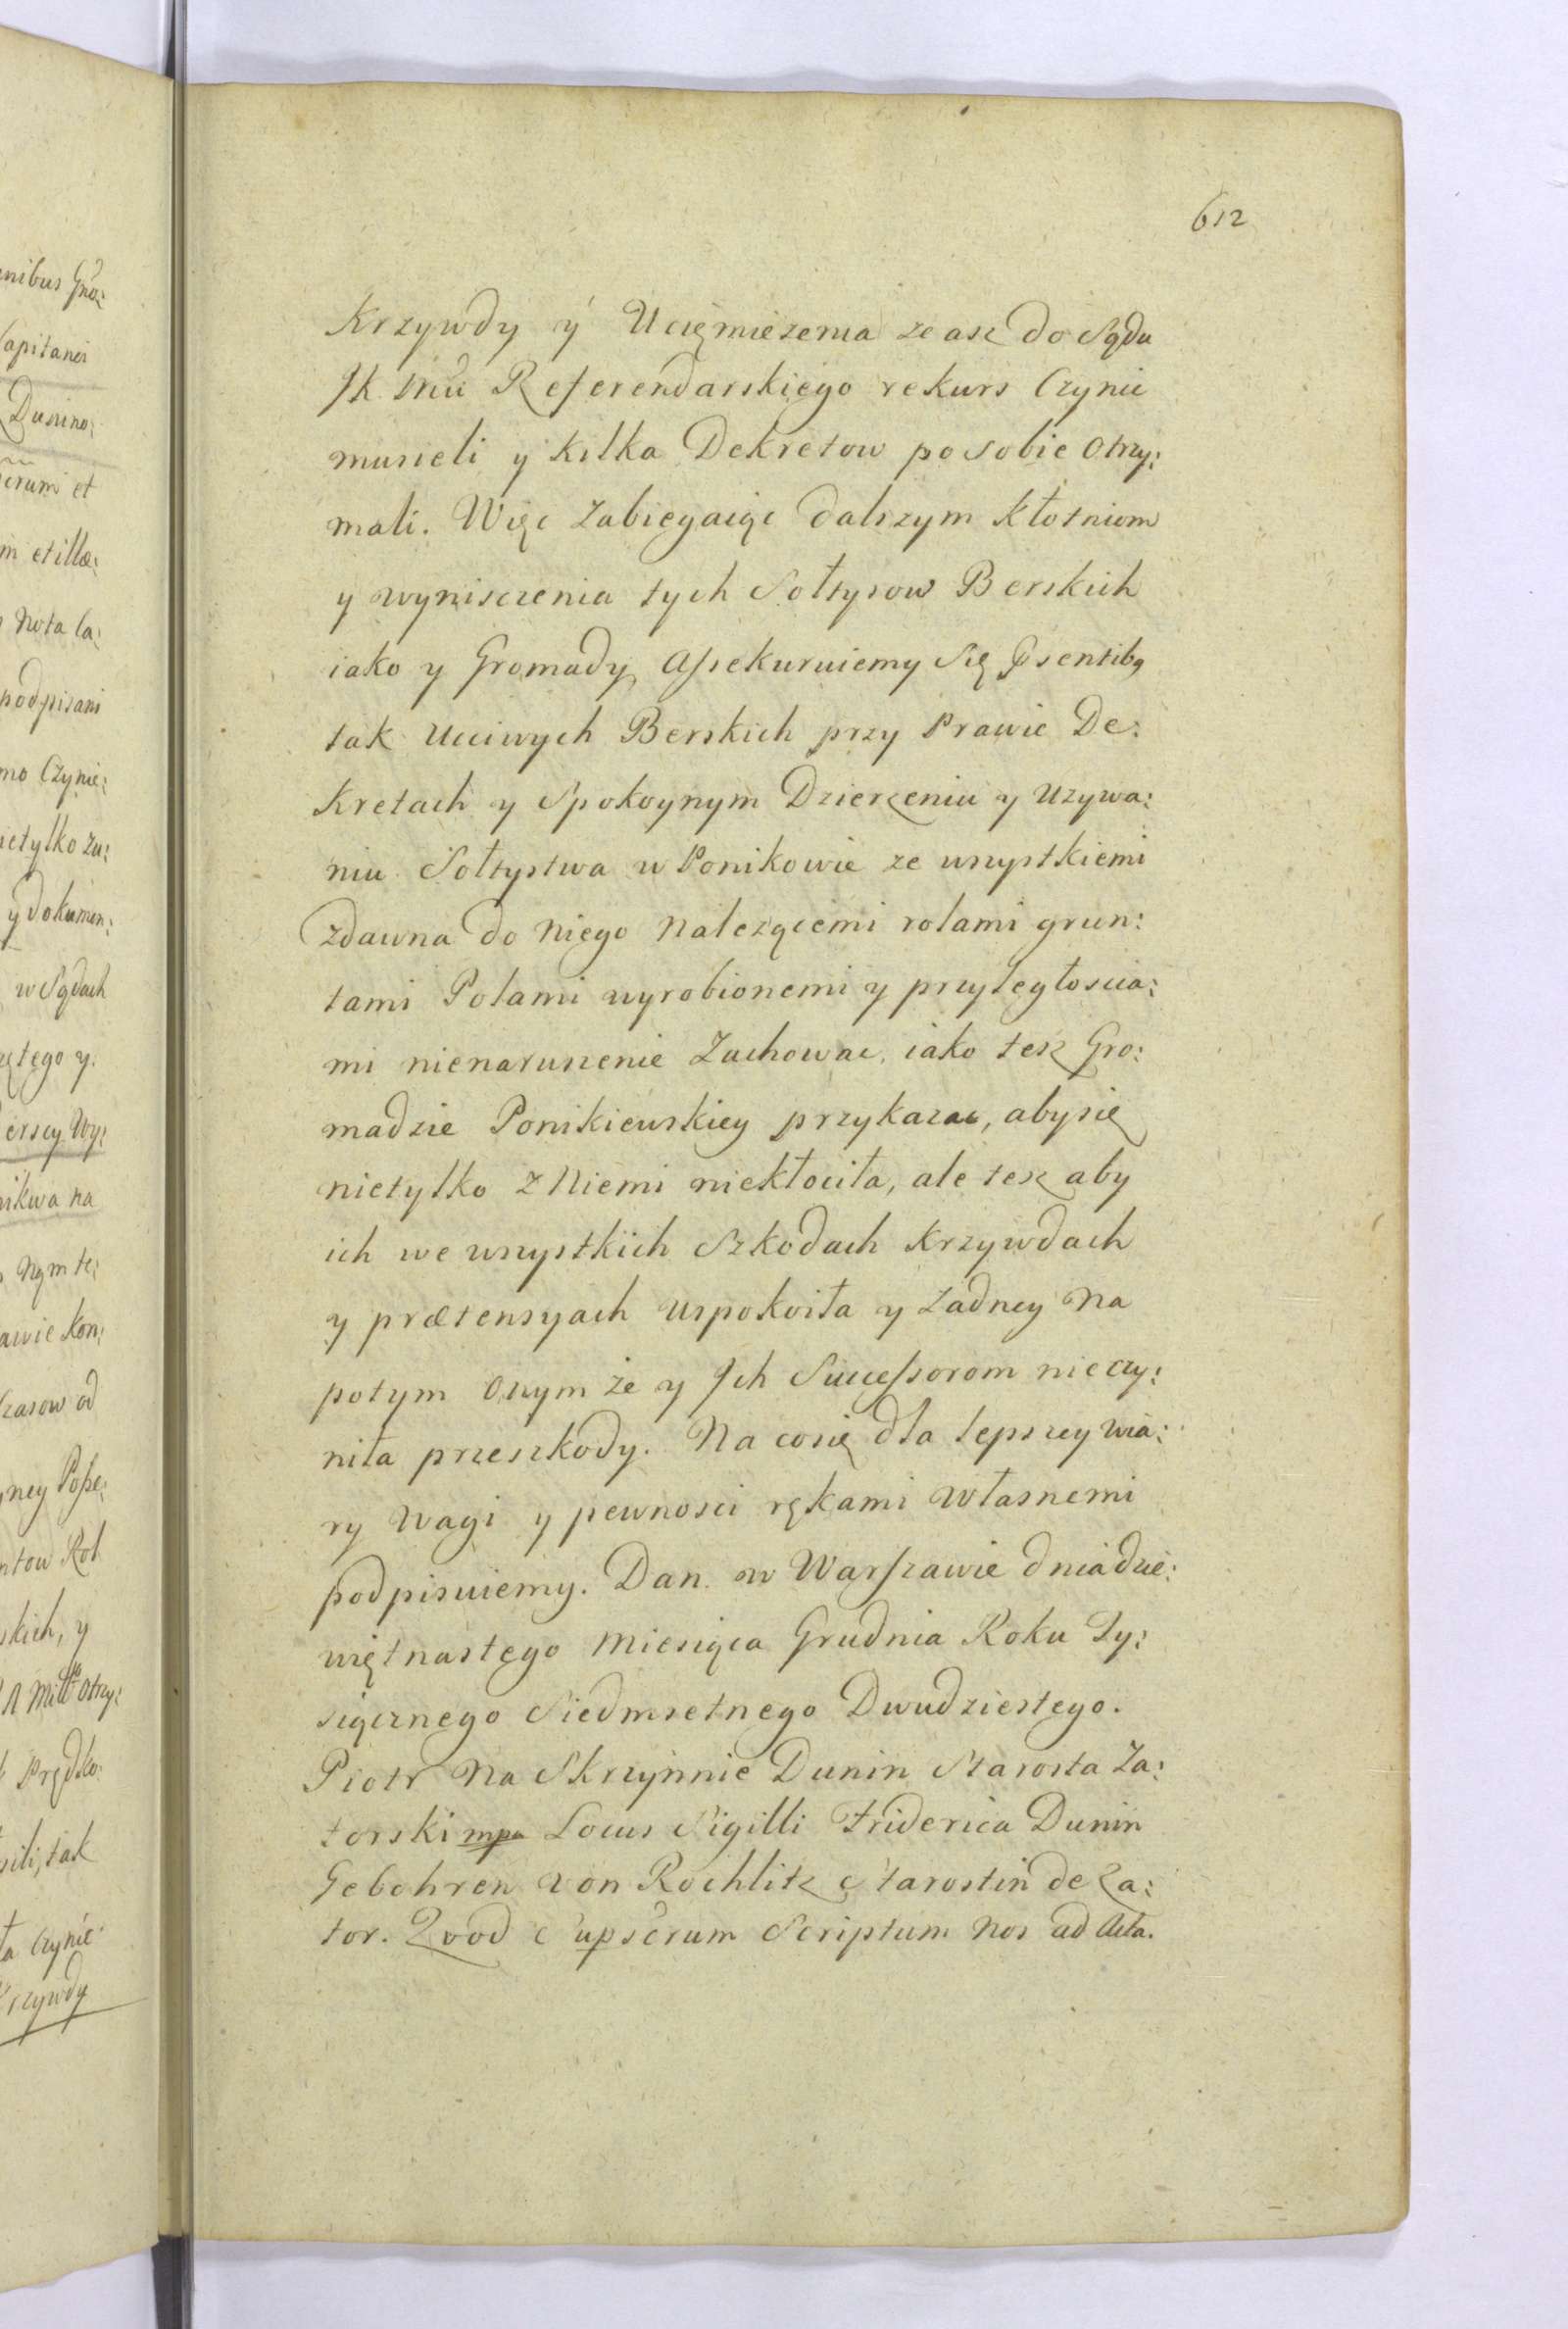 612
Krzywdy y Ucięmiezenia ze asz do Sądu
JK Mci Referendarskiego rekurs Czynic
musieli y kilka Dekretow po sobie otrzy:
mali. Więc Zabiegaiąc dalszym kłotniom
y wyniszczenia tych Sołtysow Berskich
iako y Gromady, Assekuruiemy Się Psentibq
tak Ucciwych Berskich przy Prawie De:
kretach y Spokoynym Dzierzeniu y Uzywa:
niu Sołtystwa w Ponikowie ze wszystkiemi
zdawna do Niego Nalezącemi rolami grun:
tami Polami wyrobionemi y przyległoscia:
mi nienaruszenie Zachowac, iako tesz Gro:
madzie Ponikiewskiey przykazac, aby się
nietylko z Niemi niekłociła, ale tesz aby
ich we wszystkich Szkodach Krzywdach
y prætensyach uspokoiła y zadney Na
potym Onym że y Ich Successorom nieczy:
niła przeszkody. Na co się dla lepszey wia:
ry Wagi y pewnosci rękami własnemi
podpisuiemy. Dan. w Warszawie dnia dzie:
więtnastego Miesiąca Grudnia Roku Ty:
siącznego Siedmsetnego Dwudziestego.
Piotr Na Skrzynnie Dunin Starosta Za:
torski mpa Locus Sigilli Friderica Dunin
Gebohren von Rochlitz Starostin de Za:
tor. Quod Supscrum Scriptum Nos ad Acta.
nibus Gno:
Capitanei
Dunino:
erum et
m et illæ:
Nota la:
podpisani
mo Czynie:
ietylko za:
y dokumen:
w Sądach
ętego y.
erscy Wy:
nikwa na
Nqm te:
awie Kon:
Czasow od
yney Posse:
ntow Rol
skich, y
otrzy:
Prędko:
sili, tak
ła czynic
Krzywdy